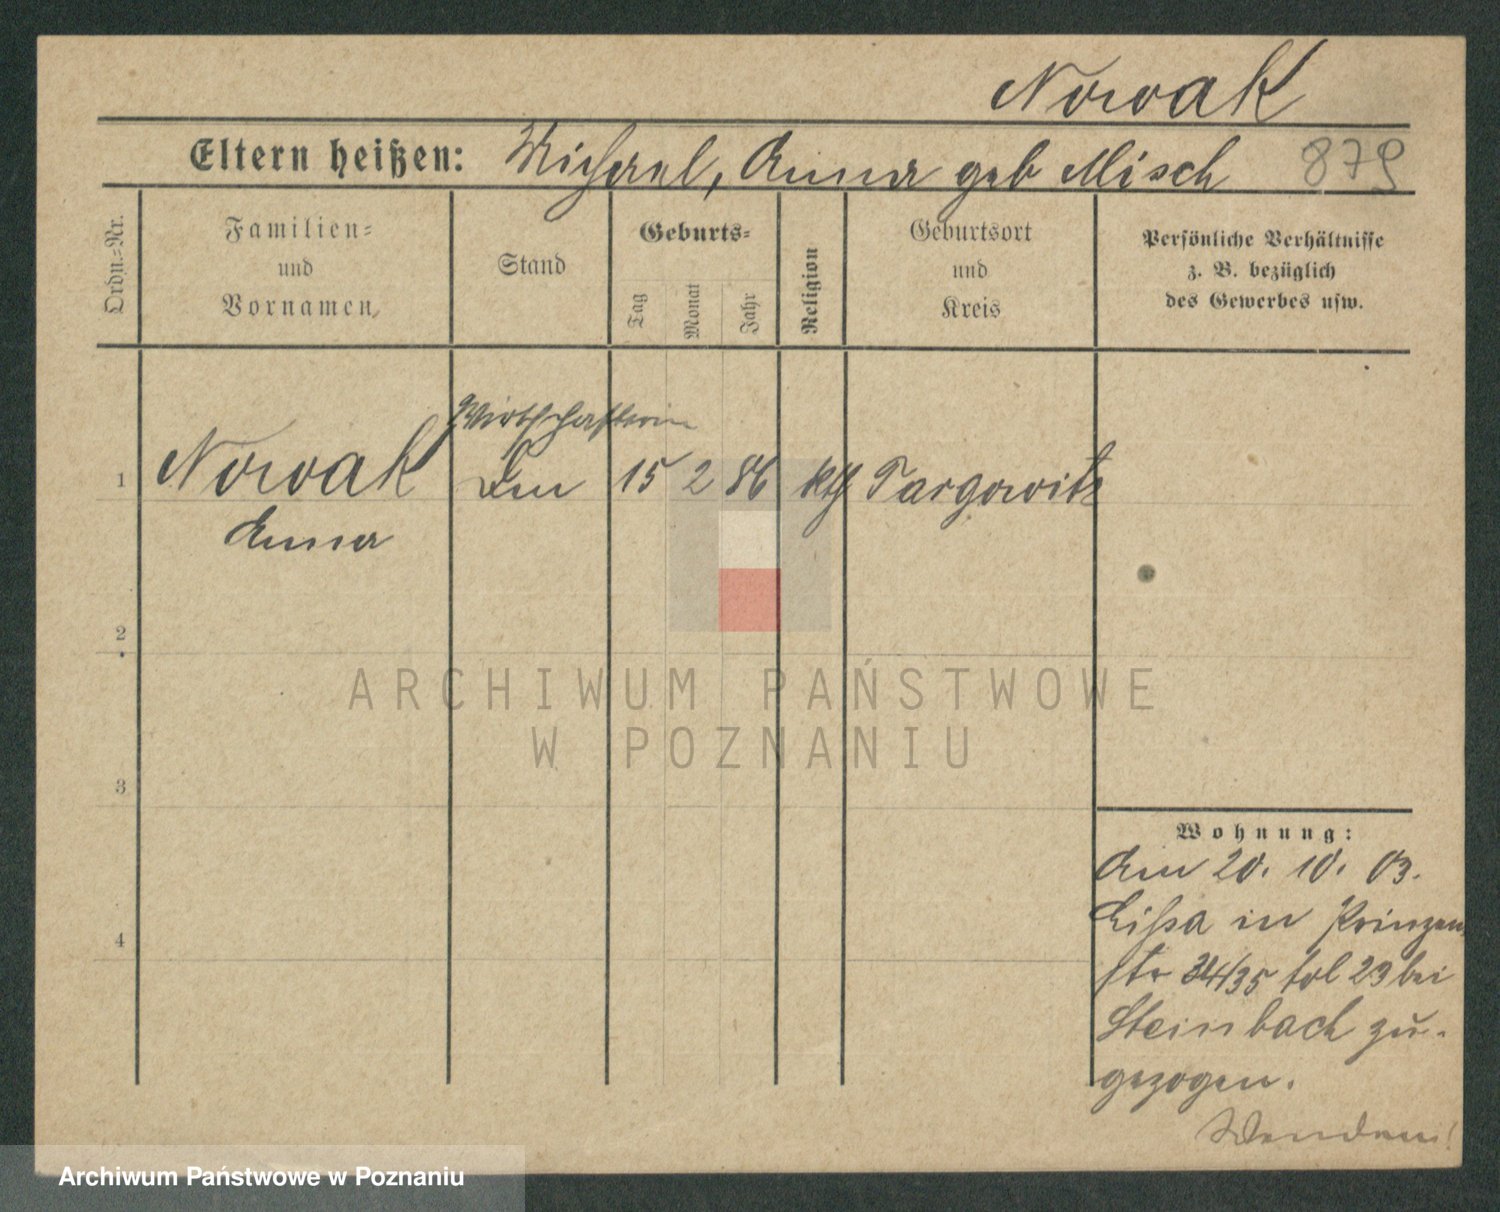 Nowak
Eltern heißen: Michael, Anna geb Misch 879
Ordn.-Nr.
Familien-
und
Vornamen
Stand
Geburts-
Tag
Monat
Jahr
Religion
Geburtsort
und
Kreis
Persönliche Verhältnisse
z. B. bezüglich
des Gewerbes usw.
Wirthschafterin
1 Nowak 15 2 86 kth Targowitz
Anna
2
3
4
ARCHIWUM PAŃSTWOWE
W POZNANIU
Wohnung:
Am 20. 10. 03.
Lissa in Prinzen
str 34/35 bei
Steinbach zu-
gezogen.
Wenden!
Archiwum Państwowe w Poznaniu